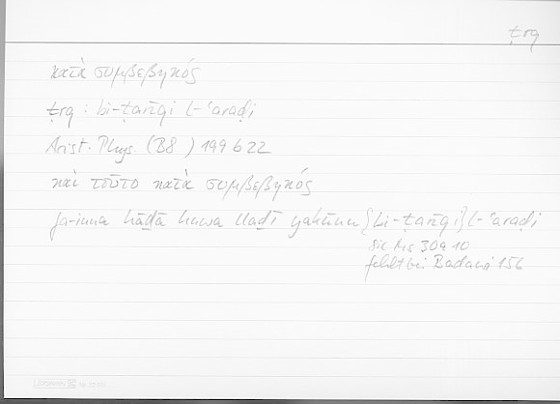 ṭrq
κατὰ συμβεβηκός
ṭrq : bi-ṭarīqi l-ʿaraḍi
Arist. Phys. (B8) 199b22
καὶ τοῦτο κατὰ συμβεβηκός
fa-inna hāḏā huwa llaḏī yakūnu {bi-ṭarīqi} l-ʿaraḍi
sic Ms 30a10
fehlt bei Badawi 156